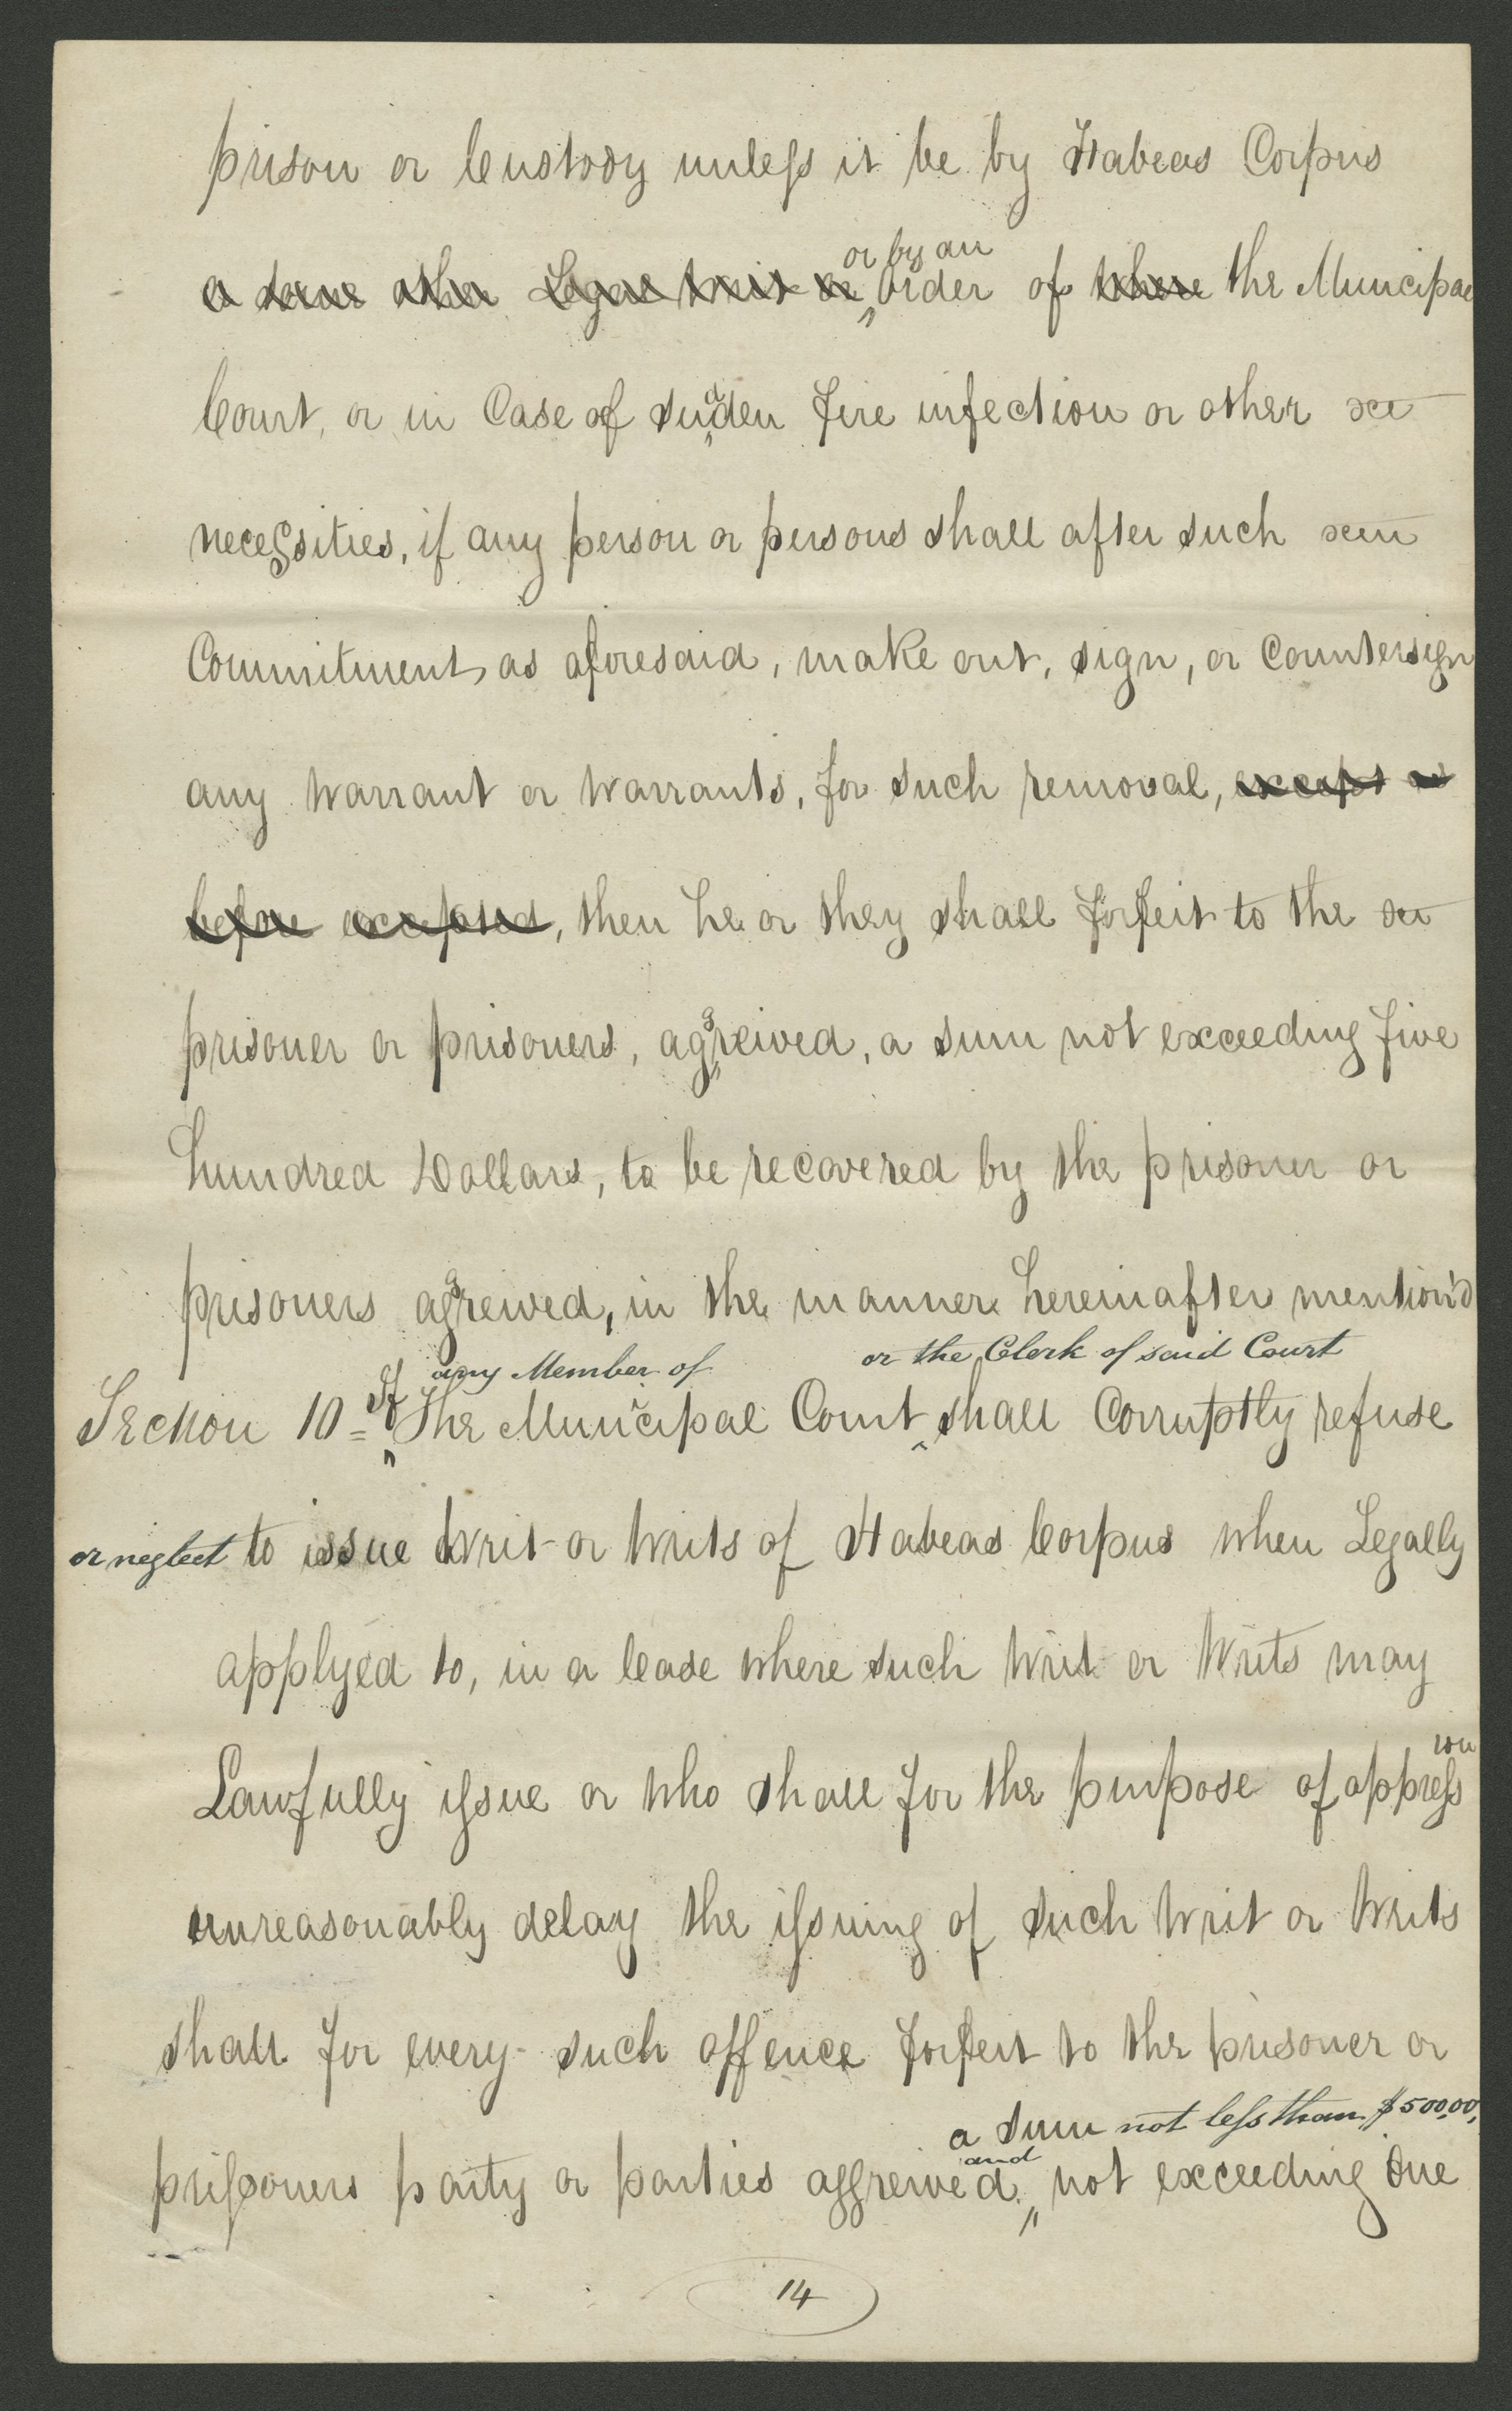 prison or Custody unless it be by Habeas Corpus
or by an
a some other Legal Writ or order of where the Muncipal
Court, or in Case of sudden fire infection or other
necessities, if any person or persons shall after such
Commitment, as aforesaid, make out, sign, or Countersign
any Warrant or Warrants, for such removal, except as
before excepted, then he or they shall forfeit to the
prisoner or prisoners, aggreived, a sum not exceeding five
hundred Dollars, to be recovered by the prisoner or
prisoners aggreived, in the manner hereinafter mention'd
any Member of or the Clerk of said Court
Section 10= If The Municipal Court shall Corruptly refuse
or neglect to issue Writ or Writs of Habeas Corpus when Legally
applyed to, in a Case where such Writ or Writs may
Lawfully issue or who shall for the purpose of oppression
unreasonably delay the issuing of such Writ or Writs
shall for every such offence forfeit to the prisoner or
a sum not less than $500.00,
and
prisoners party or parties aggreived, not exceeding One
14